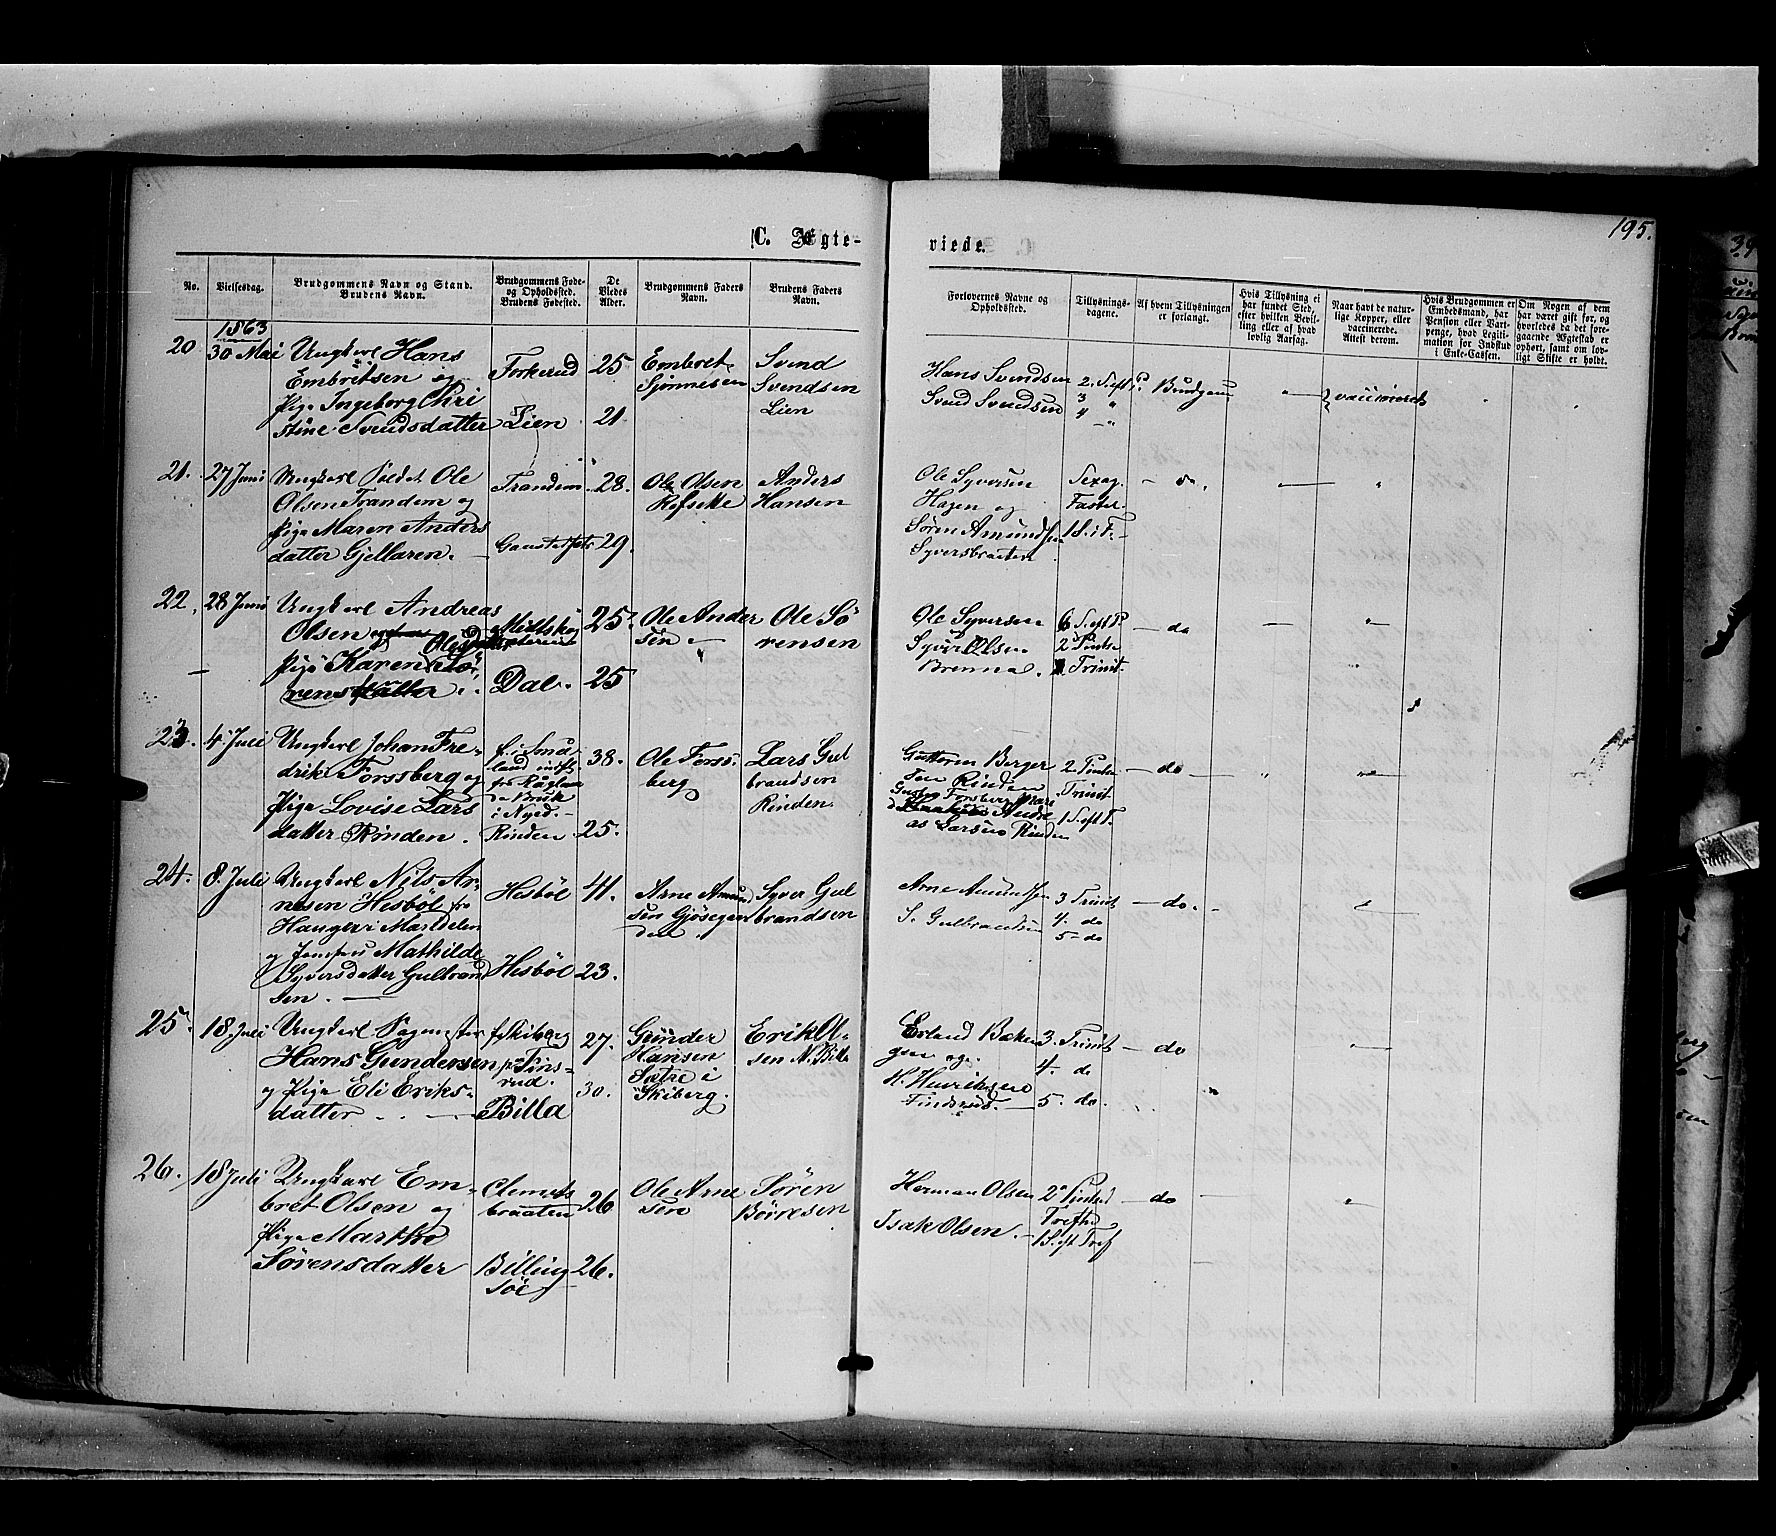 195.
C. Ægte-
viede.
No.
Vielsesdag.
Brudgommens Navn og Stand.
Brudens Navn.
Brudgommens Føde-
og Opholdssted.
Brudens Fødested.
De
Viedes
Alder.
Brudgommens Faders
Navn.
Brudens Faders
Navn.
Forlovernes Navne og
Opholdssted.
Tillysnings-
dagene.
Af hvem Tillysningen
er forlangt.
Hvis Tillysning ei
har fundet Sted,
efter hvilken Bevil-
ling eller af hvad
lovlig Aarsag.
Naar havt de natur-
lige Kopper, eller
vaccinerede.
Attest derom.
Hvis Brudgommen er
Embedsmand, har
Pension eller Vart-
penge, hvad Legiti-
mation for Indskud
i Enke-Cassen.
Om Nogen af dem
har været gift før, og
hvorledes da det fore-
gaaende Ægteskab er
ophørt, samt om lov-
ligt Skifte er holdt.
1863
20
30 Mai
Ungkarl Hans
Embretsen og
Pige Ingeborg Chri
stine Svendsdatter
Forkerud
Lien
25
21
Embret
Sjønnesen
Svend
Svendsen
Lien
Hans Svendsen
Svend Svendsen
2. S. eft P.
3 "
4 "
Brudgom
"
vaccineret
21.
27 Juni
Ungkarl Soldat Ole
Olsen Trandem og
Pige Maren Anders
datter Gjellaren.
Trandem
28.
29.
Ole Olsen
Anders
Hansen
Ole Syversen
Hagen og
Søren Amundsen
Syversbraaten
Sexag.
Faster.
1 S. i F.
do
"
22.
28 Juni
Ungkarl Andreas
Olsen og
Olesdatter
Pige Karen Sø
rensdatter
Dal.
25
25
Ole Ander
sen
Ole Sø
rensen
Ole Syversen
Syver Olsen
Brenna.
6 S. eft P.
2 Pintse
Trinit.
do
"
23.
4 Juli
Ungkarl Johan Fre-
drik Forssberg og
Pige Lovise Lars
datter Rinden.
f. i Smaa
land indfl.
i Nyed.
Rinden
38.
25.
Ole Forss-
berg
Lars Gul
brandsen
Rinden
Guttorm Berger
sen Rinden
Andre
as Larsen Rinden
2. Pintse
Trinit
1 S. eft T.
do
"
24.
8. Juli
Ungkarl Nils Ar-
nesen Hesbøl fra
Hanger i Marldelen
og Jomfru Mathilde
Syversdatter Gulbrand
sen.
Hesbøl
Hesbøl
41.
23.
Arne Amund
sen Gjøsegar
den
Syver Gul
brandsen
Arne Amundsen
S. Gulbrandsen
3 Trinit
4. do
5 - do
do.
25.
18. Juli
Ungkarl Sagmester
Hans Gundersen
og Pige Eli Eriks-
datter
f. Skiberg
paa Fins-
rud.
Billa
27.
30.
Gunder
Hansen
Sætre i
Skiberg.
Erik Ol-
sen N. Billa
Erland Bakken
gen og
H. Henriksen
Findsrud.
3. Trinit
4. do
5. do.
do
"
26.
18 Juli
Ungkarl Em-
bret Olsen og
Pige Marthe
Sørensdatter
Clemets
braaten
Billing
søe
26
26.
Ole Arne
sen
Søren
Børresen
Herman Olsen
Isak Olsen.
2 Pintsed
Trefhd
1 S. eft Tref
do
"